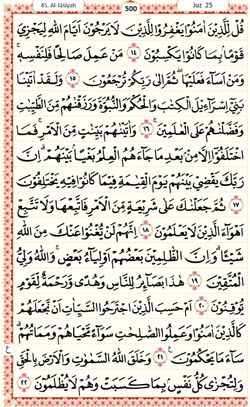 45. Al-Jāsiyah
500
Juz 25
قُلْ لِّلَّذِيْنَ اٰمَنُوْا يَغْفِرُوْا لِلَّذِيْنَ لَا يَرْجُوْنَ اَيَّامَ اللّٰهِ لِيَجْزِيَ
قَوْمًاۢ بِمَا كَانُوْا يَكْسِبُوْنَ ١٤ مَنْ عَمِلَ صَالِحًا فَلِنَفْسِهٖۚ
وَمَنْ اَسَاۤءَ فَعَلَيْهَا ۖ ثُمَّ اِلٰى رَبِّكُمْ تُرْجَعُوْنَ ١٥ وَلَقَدْ اٰتَيْنَا
بَنِيْٓ اِسْرَاۤءِيْلَ الْكِتٰبَ وَالْحُكْمَ وَالنُّبُوَّةَ وَرَزَقْنٰهُمْ مِّنَ الطَّيِّبٰتِ
وَفَضَّلْنٰهُمْ عَلَى الْعٰلَمِيْنَ ١٦ وَاٰتَيْنٰهُمْ بَيِّنٰتٍ مِّنَ الْاَمْرِۚ فَمَا
اخْتَلَفُوْٓا اِلَّا مِنْۢ بَعْدِ مَا جَاۤءَهُمُ الْعِلْمُ بَغْيًاۢ بَيْنَهُمْ ۗ اِنَّ
رَبَّكَ يَقْضِيْ بَيْنَهُمْ يَوْمَ الْقِيٰمَةِ فِيْمَا كَانُوْا فِيْهِ يَخْتَلِفُوْنَ
١٧ ثُمَّ جَعَلْنٰكَ عَلٰى شَرِيْعَةٍ مِّنَ الْاَمْرِ فَاتَّبِعْهَا وَلَا تَتَّبِعْ
اَهْوَاۤءَ الَّذِيْنَ لَا يَعْلَمُوْنَ ١٨ اِنَّهُمْ لَنْ يُّغْنُوْا عَنْكَ مِنَ اللّٰهِ
شَيْـًٔا ۗ وَاِنَّ الظّٰلِمِيْنَ بَعْضُهُمْ اَوْلِيَاۤءُ بَعْضٍ ۚ وَاللّٰهُ وَلِيُّ
الْمُتَّقِيْنَ ١٩ هٰذَا بَصَاۤىِٕرُ لِلنَّاسِ وَهُدًى وَّرَحْمَةٌ لِّقَوْمٍ
يُّوْقِنُوْنَ ٢٠ اَمْ حَسِبَ الَّذِيْنَ اجْتَرَحُوا السَّيِّاٰتِ اَنْ نَّجْعَلَهُمْ
كَالَّذِيْنَ اٰمَنُوْا وَعَمِلُوا الصّٰلِحٰتِ سَوَاۤءً مَّحْيَاهُمْ وَمَمَاتُهُمْ ۗ
سَاۤءَ مَا يَحْكُمُوْنَ ٢١ وَخَلَقَ اللّٰهُ السَّمٰوٰتِ وَالْاَرْضَ بِالْحَقِّ
وَلِتُجْزٰى كُلُّ نَفْسٍۢ بِمَا كَسَبَتْ وَهُمْ لَا يُظْلَمُوْنَ ٢٢
ع